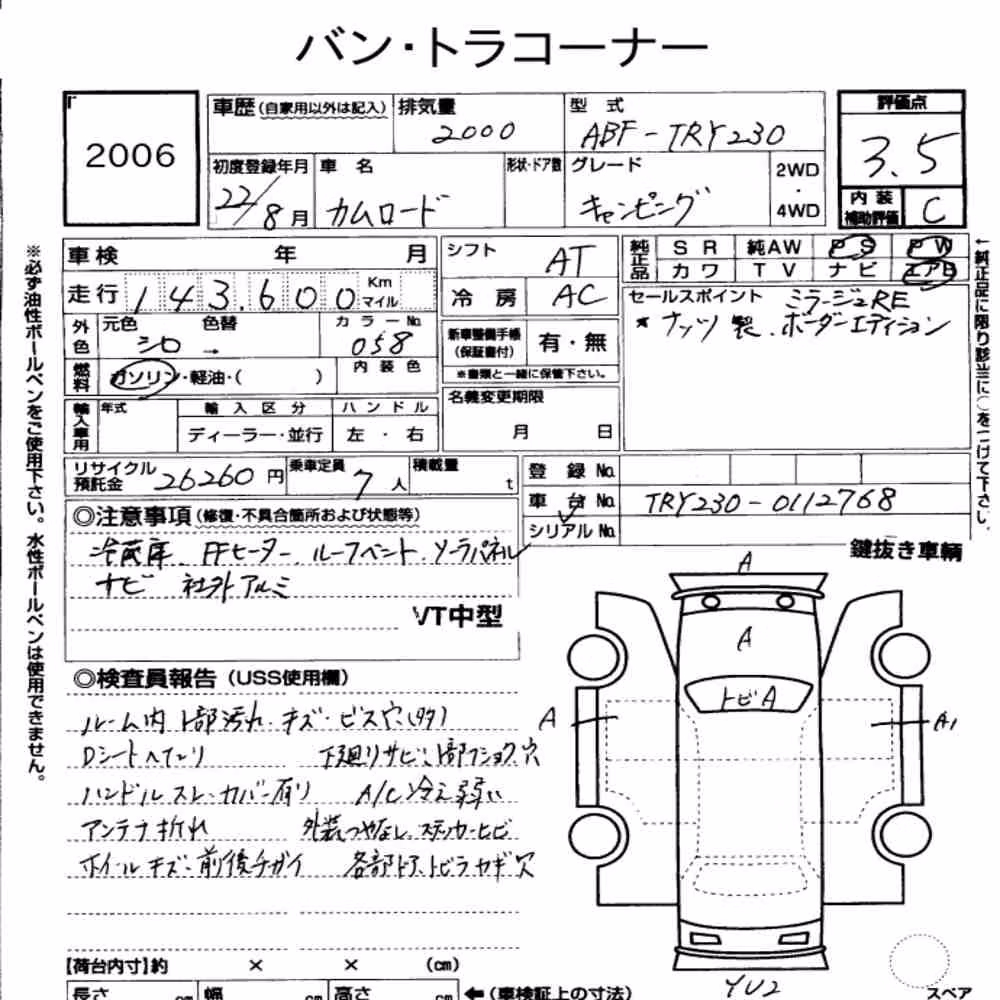 バン・トラコーナー
2006
車歴(自家用以外は記入) 排気量 2000 型式 ABF-TRY230
評価点 3.5
初度登録年月 22/8月 車名 カムロード 形状・ドア数 グレード キャンピング 2WD・4WD
内装補助評価 C
車検 年 月
走行 143,600 Km マイル
外色 元色 シロ → 色替 カラーNo. 058
燃料 ガソリン・軽油・( ) 内装色
輸入車用 年式 輸入区分 ディーラー・並行 ハンドル 左・右
シフト AT
冷房 AC
新車整備手帳(保証書付) 有・無
※書類と一緒に保管下さい。
名義変更期限 月 日
純正品 SR 純AW PS PW
カワ TV ナビ エアB
セールスポイント ミラージュRE
★ナッツ製.ボーダーエディション
リサイクル預託金 26260円 乗車定員 7人 積載量 t
登録No.
車台No. TRY230-0112768
シリアルNo.
◎注意事項(修復・不具合箇所および状態等)
冷蔵庫 FFヒーター ルーフベント ソーラパネル
ナビ 社外アルミ
VT中型
鍵抜き車輌
◎検査員報告(USS使用欄)
ルーム内 ト部汚れ.キズ・ビス穴(タタ)
Dシートヘタリ 下廻りサビ.
ハンドルスレ.カバー有り A/C冷え弱い
アンテナ折れ 外装つやなし.ステッカーヒビ
ホイールキズ・前後チガイ 各部ドア.トビラカギ穴
A
A
トビA
A
A1
YU2
スペア
【荷台内寸】約 × × (cm)
長さ cm 幅 cm 高さ cm ←(車検証上の寸法)
※必ず油性ボールペンをご使用下さい。水性ボールペンは使用できません。
←純正品に限り該当に○をつけて下さい。